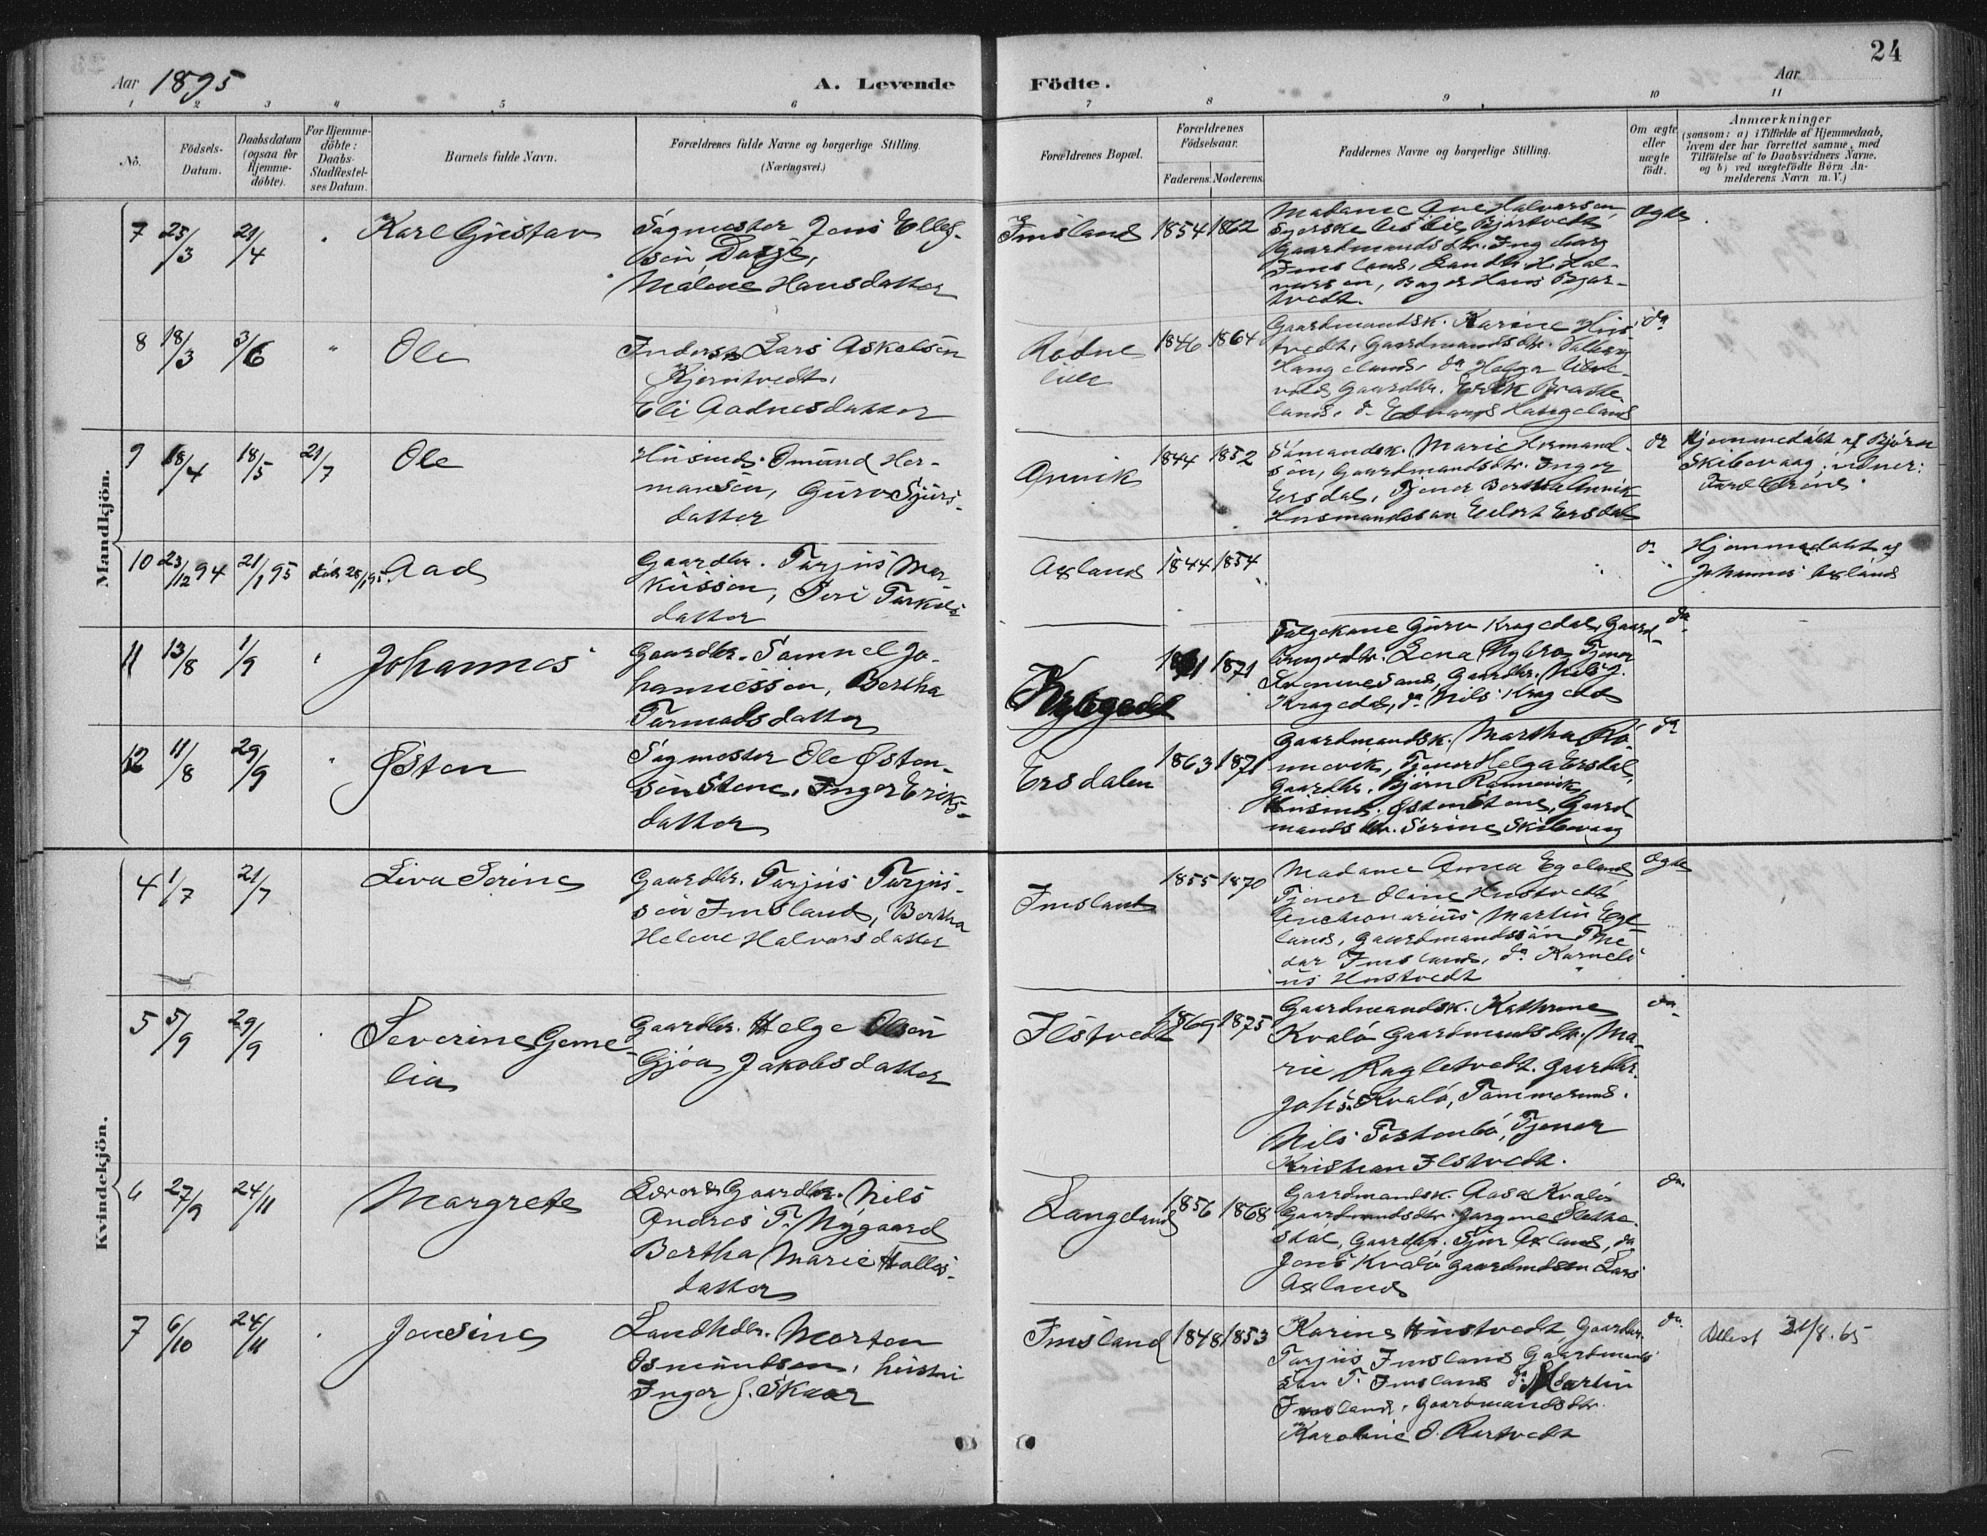 24
Aar 1895
A. Levende Födte.
Aar
1 2 3 4 5 6 7 8 9 10 11
No.
Födsels-Datum.
Daabsdatum (ogsaa for Hjemme-döbte).
For Hjemme-döbte: Daabs-Stadfæstel-ses Datum.
Barnets fulde Navn.
Forældrenes fulde Navne og borgerlige Stilling. (Næringsvei.)
Forældrenes Bopæl.
Forældrenes Födselsaar.
Faderens. Moderens.
Faddernes Navne og borgerlige Stilling.
Om ægte eller uægte födt.
Anmærkninger
(saasom: a) i Tilfælde af Hjemmedaab,
hvem der har forrettet samme, med
Tilföielse af to Daabsvidners Navne.
og b) ved uægtefödte Börn An-
melderens Navn m. V.)
Mandkjön.
7 25/3 21/4 Karl Gustav
Sagmester Jens Elles-
sön Dalje,
Malene Hansdatter
Imsland 1854 1862
Madame Ane Halvorsen
Gaardmandsdtr. Ingeborg
Imsland, Landh. H. Hal-
vorsen, Bager Hans Bjor-
tvedt.
Ægte
8 18/3 3/6 " Ole
Inderst Lars Askelsön
Kjerntvedt,
Eli Aadnesdatter
Rödne
lien
1846 1864
Gaardmandsk. Karine Hus-
tvedt, Gaardmandsdtr. Valborg
Haugeland, do Helga Ulve-
Gaardbr. Erik Bratte-
land, do Edvard Haugeland
do
9 18/4 18/5 21/7 Ole
Husmd. Omund Her-
mansen, Guro Sjurs-
datter
Anvik 1844 1852
Sömandsk. Marie Hermand-
sön, Gaardmandsdtr. Inger
Ersdal, Tjener Bertha Anvik
Husmandssön Eilert Ersdal
do
Hjemmedöbt af Björn
Skibevaag; vidner:
10 23/12 94 21/1 95 Aad
Gaardbr. Tarjus Mar-
kussen, Siri Tarkels-
datter
Axland 1844 1854
do
Hjemmedöbt af
Johannes Axland
11 13/8 1/9 Johannes
Gaardbr. Samuel Jo-
hannessen, Bertha
Tormodsdatter
Kragedal 1871
Folgekone Guro Kragedal, Gaard-
brugerdtr. Lena Nybro, Tjener
Gaardbr. Nils J.
Kragedal, do Nils Kragedal
do
12 11/8 29/9 " Østen
Sagmester Ole Østen-
sön Stene, Inger Eriks-
datter
Ersdalen 1863 1871
Gaardmandsk. Martha Rö-
nnevik, Tjener Helga Ersdal,
Gaardbr. Björn Rönnevik
Husmd. Østen Stene, Gaard
mands dtr. Serine Skibevaag
do
Kvindekjön.
4 1/7 21/7 Liva Serine
Gaardbr. Tarjus Tarjus-
sön Imsland, Bertha
Helene Halvorsdatter
Imsland 1855 1870
Madame Anna Egeland
Tjener Oline Hustvedt
Auctionarius Martin Ege-
land, Gaardmandssön The-
dor Imsland, do Karneli
us Hustvedt
Ægte
5 5/9 29/9 Severine Geme-
lia
Gaardbr. Helge Olsön
Gjöa Jakobsdatter
Ilstvedt 1869 1875
Gaardmandsk. Kathrine
Kvalö Gaardmandsdtr. Ma-
rie Ragletvedt. Gaardbr.
Johs. Kvalö, Tömmermd.
Nils Tostenbö, Tjener
Kristian Ilstvedt.
do
6 27/9 24/11 Margrete
Lærer & Gaardbr. Nils
Andreas T. Nygaard
Bertha Marie Halles-
datter
Langeland 1856 1868
Gaardmandsk. Aasa Kvalö
Gaardmandsdtr. Jørgine Slette-
stöl, Gaardbr. Sjur Axland, do
Jens Kvalö Gaardmdsön Lars
Axland
do
7 6/10 24/11 Jensine
Landhdlr. Morten
Osmundsen, hustru
Inger J. Skaar
Imsland 1848 1853
Karine Hustvedt Gaardbr.
Tarjus Imsland Gaardmands
sön T. Imsland do Martin
Imsland, Gaardmandsdtr.
Karoline O. Rartvedt
do
Attest 31/8.65